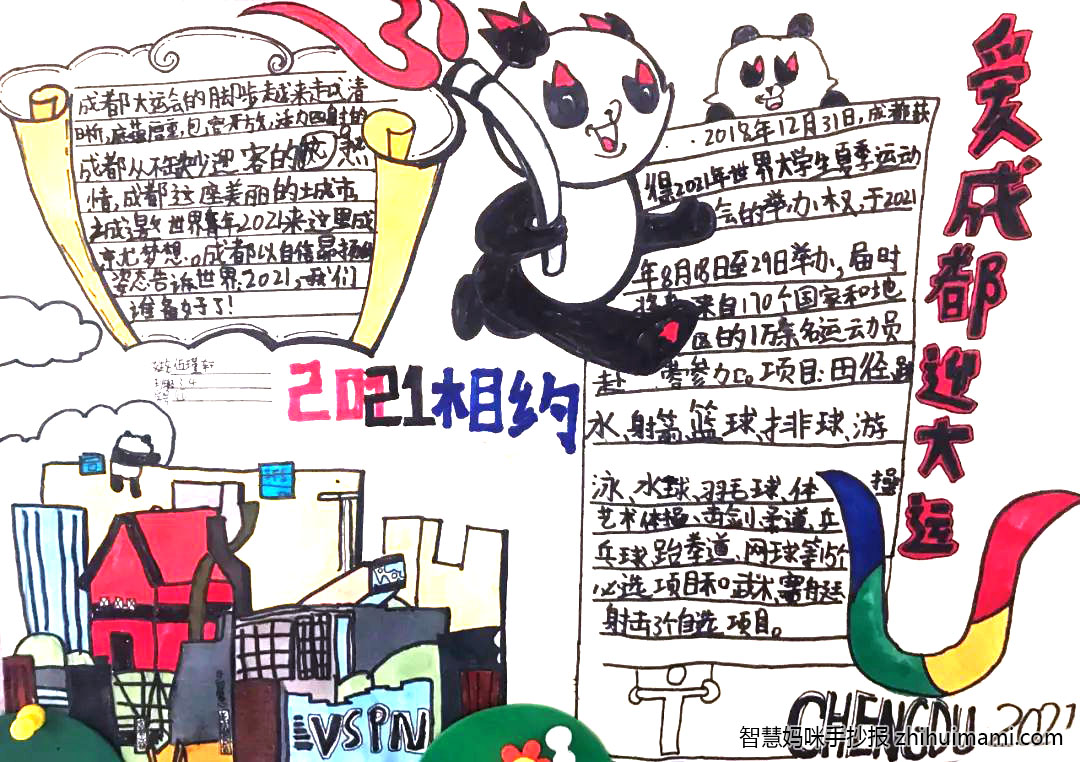 成都大运会的脚步越来走或清
晰,底蕴厚重,包容开放,活力四射的
成都从不缺少迎客的热
情,成都这座美丽的城市
世界青年2021来这里成
梦想。成都以自信昂扬的
姿态告诉世界:2021,我们
准备好了!
2021相约
VSPN
2018年12月31日,成都获
得2021年世界大学生夏季运动
会的举办权,于2021
年8月18日至29日举办,届时
将有来自170个国家和地
区的1万余名运动员
赴 参加。项目:田径、跳
水、射箭、篮球、排球、游
泳、水球、羽毛球、体操
艺术体操、击剑、柔道、乒
乓球、跆拳道、网球等15个
必选项目和武术、赛艇
射击3个自选项目。
爱成都迎大运
CHENGDU 2021
智慧妈咪手抄报 zhihuimami.com